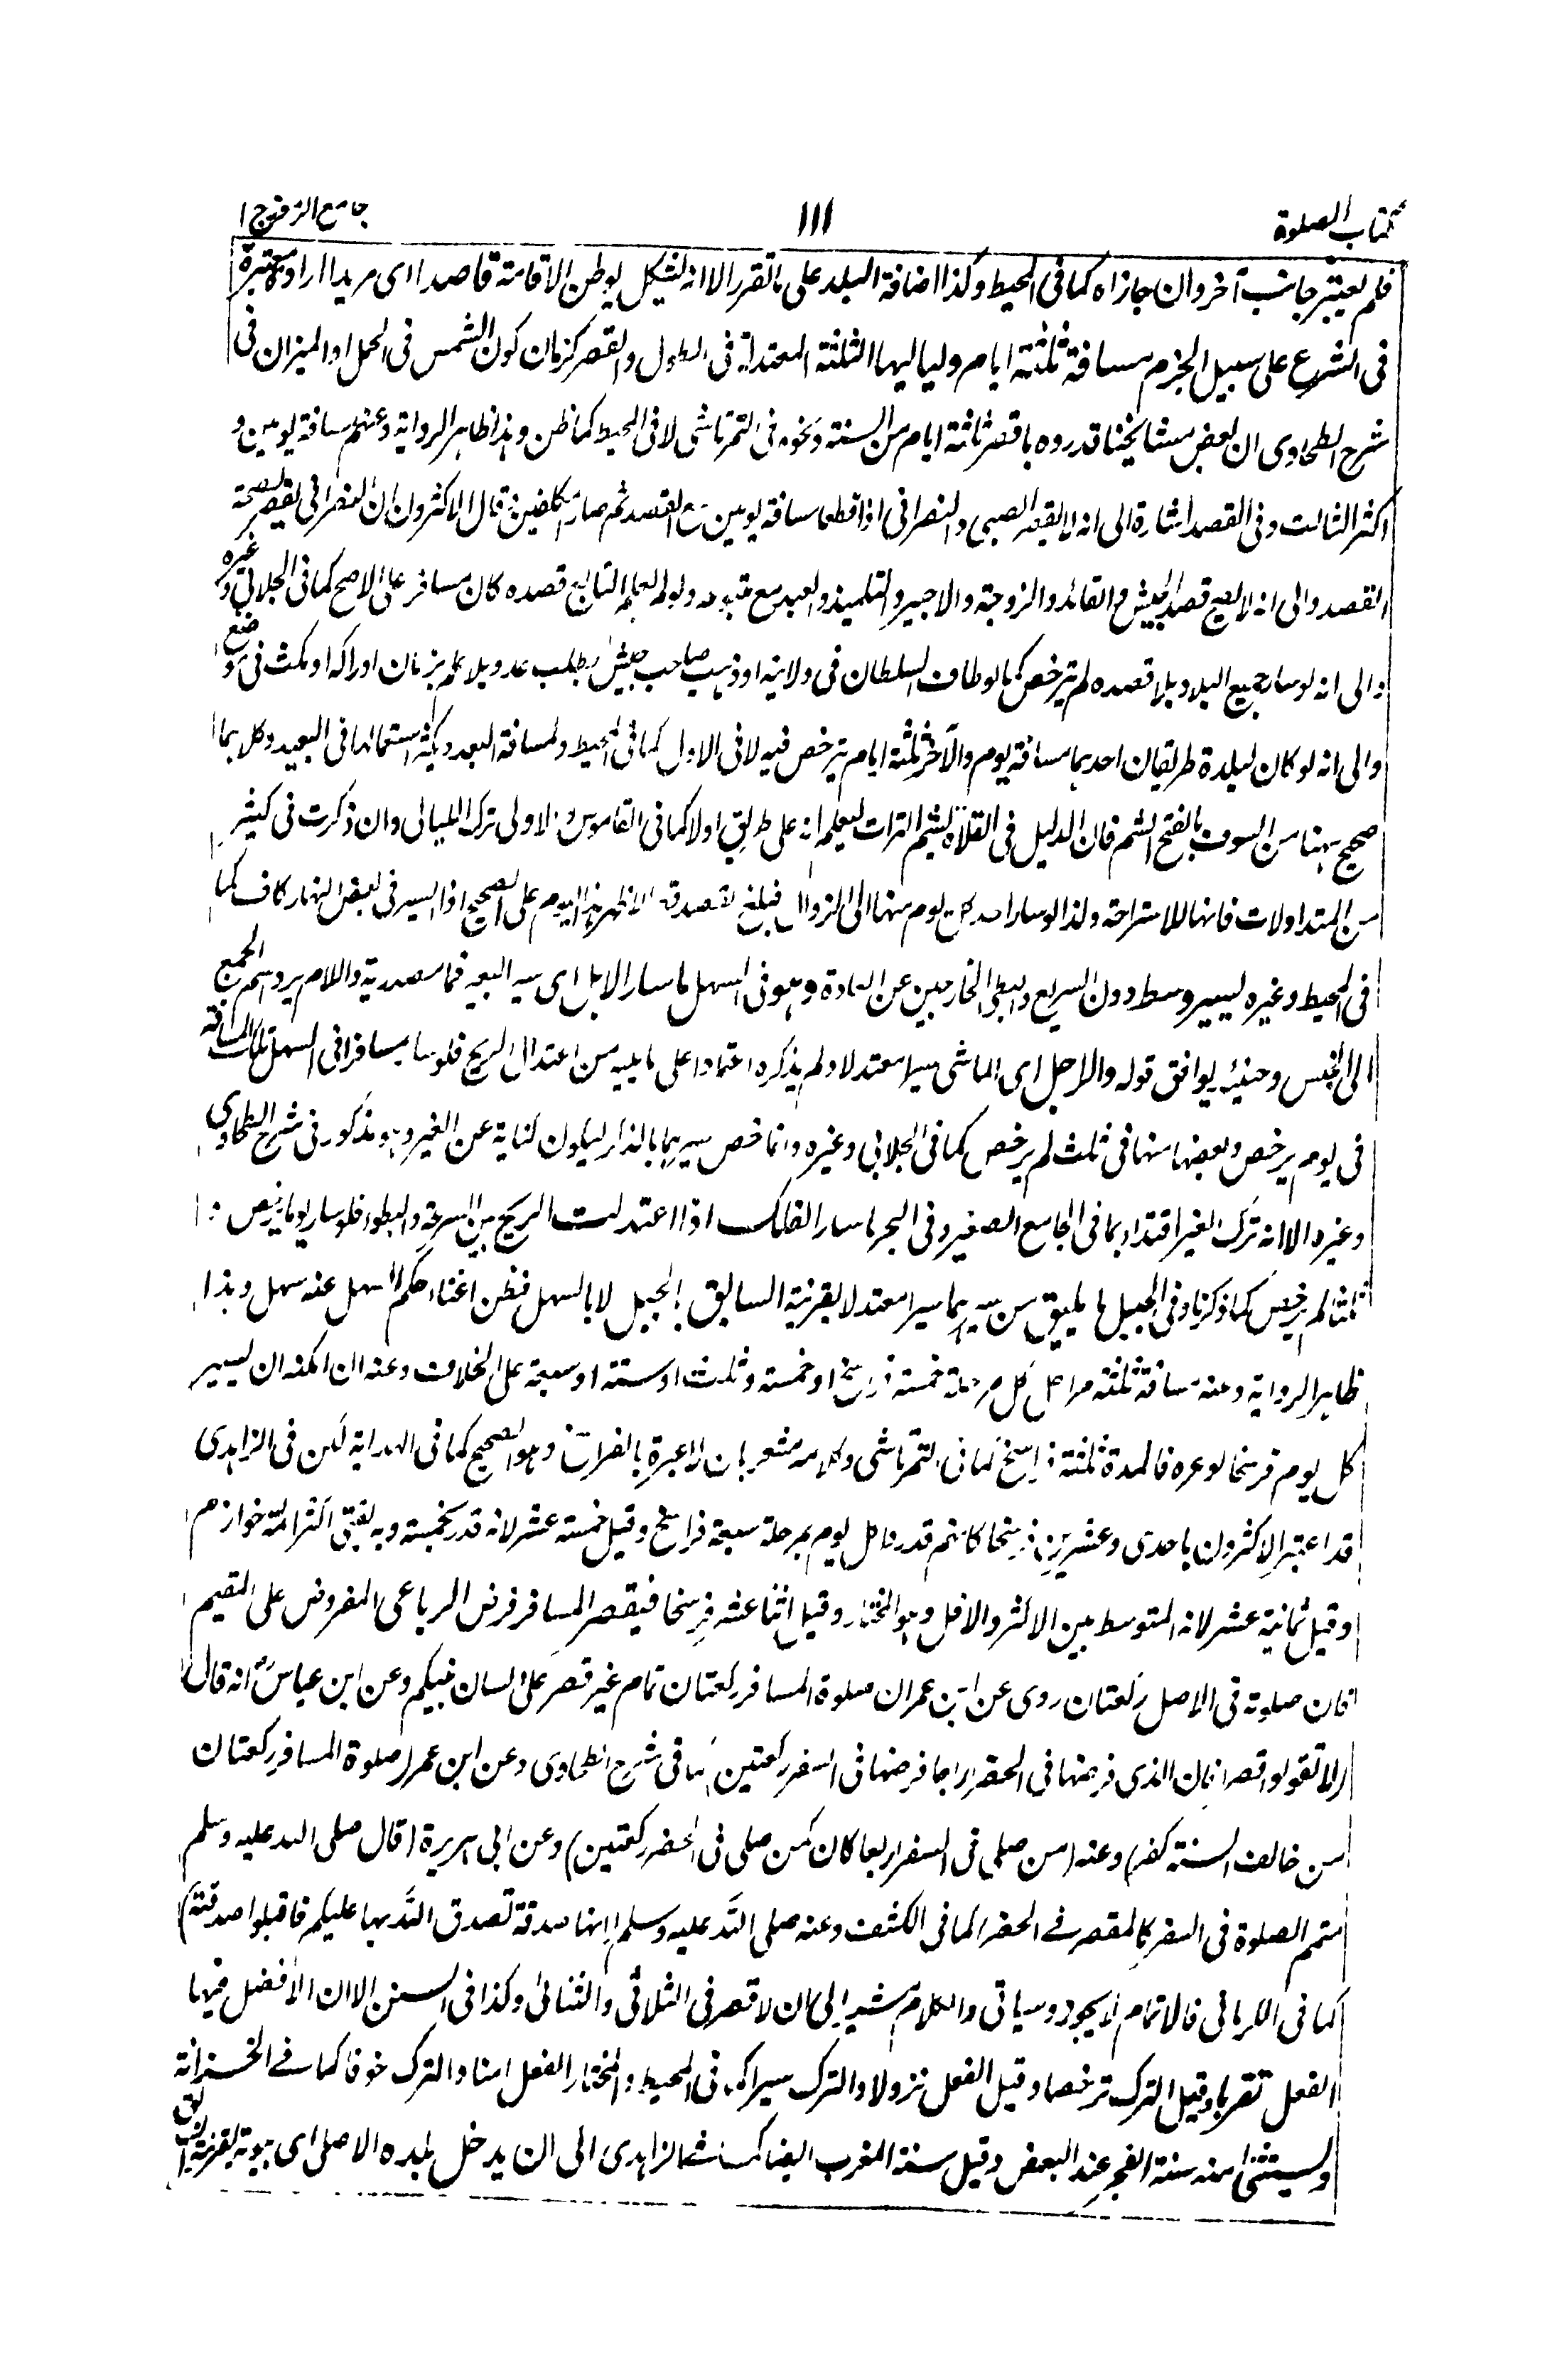 كتاب الصلوة
١١١
جامع الرموز ج ١
فلم يعتبر جانب آخر وان جازاه كما فى المحيط وكذا اضافة البلد على ما تقرر الا انه يشكل بوطن الاقامة قاصدا اى مريدا ارادة معتبرة
فى الشرع على سبيل الجزم مسافة ثلثة ايام ولياليها الثلثة المعتدلة فى الطول والقصر كزمان كون الشمس فى الحمل او الميزان فى
شرح الطحاوى ان بعض مشايخنا قدروه باقصر ثلثة ايام من السنة ونحوه فى التمرتاشى لا فى المحيط كما ظن وهذا ظاهر الرواية وعنهم مسافة يومين و
اكثر الثالث وفى القصد اشارة الى انه لا يقصر الصبى والنصرانى اذا قطعا مسافة يومين مع القصد ثم صارا مكلفين قال الاكثرون ان النصرانى يقصر لصحة
القصد والى انه لا يصح قصد الجيش والقائد والزوجة والاجير والتلميذ والعبد مع متبوعه ولو لم يعلم التابع قصده كان مسافر على الاصح كما فى الجلابى وغيره
والى انه لو سار جميع البلاد بلا قصده لم يترخص كما لو طاف السلطان فى ولايته او ذهب صاحب جيش بطلب عدو بلا علم بزمان ادراكه او مكث فى موضع
والى انه لو كان لبلدة طريقان احديهما مسافة يوم والآخر ثلثة ايام يترخص فيه لا فى الاول كما فى المحيط والمسافة البعد وكثر استعمالها فى البعيد وكلاهما
صحيح ههنا من السوف بالفتح الشم فان الدليل فى الفلاة يشم التراب ليعلم انه على طريق اولا كما فى القاموس والاولى ترك الليالى وان ذكرت فى كثير
من المتداولات فانها للاستراحة ولذا لو سار كل يوم منها الى الزوال فبلغ مقصده الاظهر هذا اليوم على الصحيح اذا السير فى بعض النهار كاف كما
فى المحيط وغيره ليسير وسط دون السريع والبطى الخارجين عن العادة وهو فى السهل ما سار الابل اى سير البعير فما مصدرية واللام يرد اسم الجمع
الى الجنس وحينئذ يوافق قوله والراجل اى الماشى سيرا معتدلا ولم يذكره اعتمادا على ما يجيء من اعتدال الريح فلو سار مسافرا فى السهل تلك المسافة
فى يوم يرخص وبعضها منها فى ثلث لم يرخص كما فى الجلابى وغيره وانما خص سيرهما بالذكر ليكون كناية عن الغير وهو مذكور فى شرح الطحاوى
وغيره الا انه ترك الغير اقتداء بما فى الجامع الصغير وفى البحر ما سار الفلك اذا اعتدلت الريح بين السرعة والبطوء فلو سار يوما يرخص
ثلثا لم يرخص كما ذكرنا وفى الجبل ما يليق من سيرهما سيرا معتدلا بقرينة السابق بالجبل لا بالسهل فظن اغناء حكم السهل عنه سهل وهذا
ظاهر الرواية وعنه مسافة ثلثة مراحل كل مرحلة خمسة فراسخ او خمسة وثلث او ستة او سبعة على الخلاف وعنه ان امكنه ان يسير
كل يوم فرسخا لوعره فالمدة ثلثة فراسخ كما فى التمرتاشى وكلامه مشعر بان لا عبرة بالفراسخ وهو الصحيح كما فى الهداية لكن فى الزاهدى
قد اعتبر الاكثرون باحدى وعشرين فرسخا كانهم قدروا كل يوم بمرحلة سبعة فراسخ وقيل خمسة عشر لانه قدر بخمسة وبه يفتى اكثر ائمة خوارزم
وقيل ثمانية عشر لانه المتوسط بين الاكثر والاقل وهو المختار وقيل اثنا عشر فرسخا فيقصر المسافر فرض الرباعى المفروض على المقيم
فان صلوته فى الاصل ركعتان روى عن ابن عمران صلوة المسافر ركعتان تمام غير قصر على لسان نبيكم وعن ابن عباس انه قال
(لا تقولوا قصرا فان الذى فرضها فى الحضر اربعا فرضها فى السفر ركعتين) كما فى شرح الطحاوى وعن ابن عمر (صلوة المسافر ركعتان
من خالف السنة كفر) وعنه (من صلى فى السفر اربعا كان كمن صلى فى الحضر ركعتين) وعن ابى هريرة (قال صلى الله عليه وسلم
متمم الصلوة فى السفر كالمقصر فى الحضر) كما فى الكشف وعنه صلى الله عليه وسلم (انها صدقة تصدق الله بها عليكم فاقبلوا صدقته)
كما فى الكرمانى فالاتمام لا يجوز وسياتى والكلام مشير الى ان لا قصر فى الثلاثى والثنائى وكذا فى السنن الا ان الافضل فيها
الفعل تقربا وقيل الترك ترخصا وقيل الفعل نزولا والترك سيرا كما فى المحيط والمختار الفعل امنا والترك خوفا كما فى الخزانة
ويستثنى منه سنة الفجر عند البعض وقيل سنة المغرب ايضا كما فى الزاهدى الى ان يدخل بلده الاصلى اى بيوته بقرينة السابق